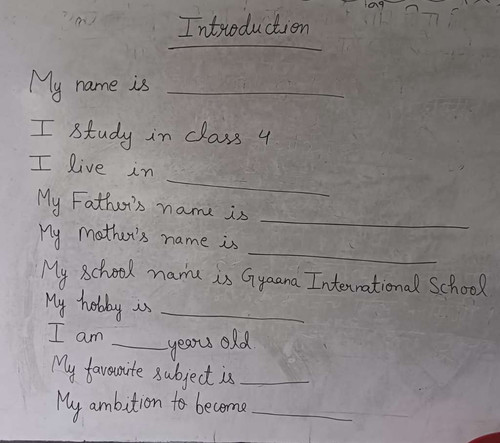 Introduction
My name is ____________
I study in class 4
I live in ____________
My Father's name is ____________
My mother's name is ____________
My school name is Gyaana International School
My hobby is ____________
I am _____ years old.
My favourite subject is ______
My ambition to become ________